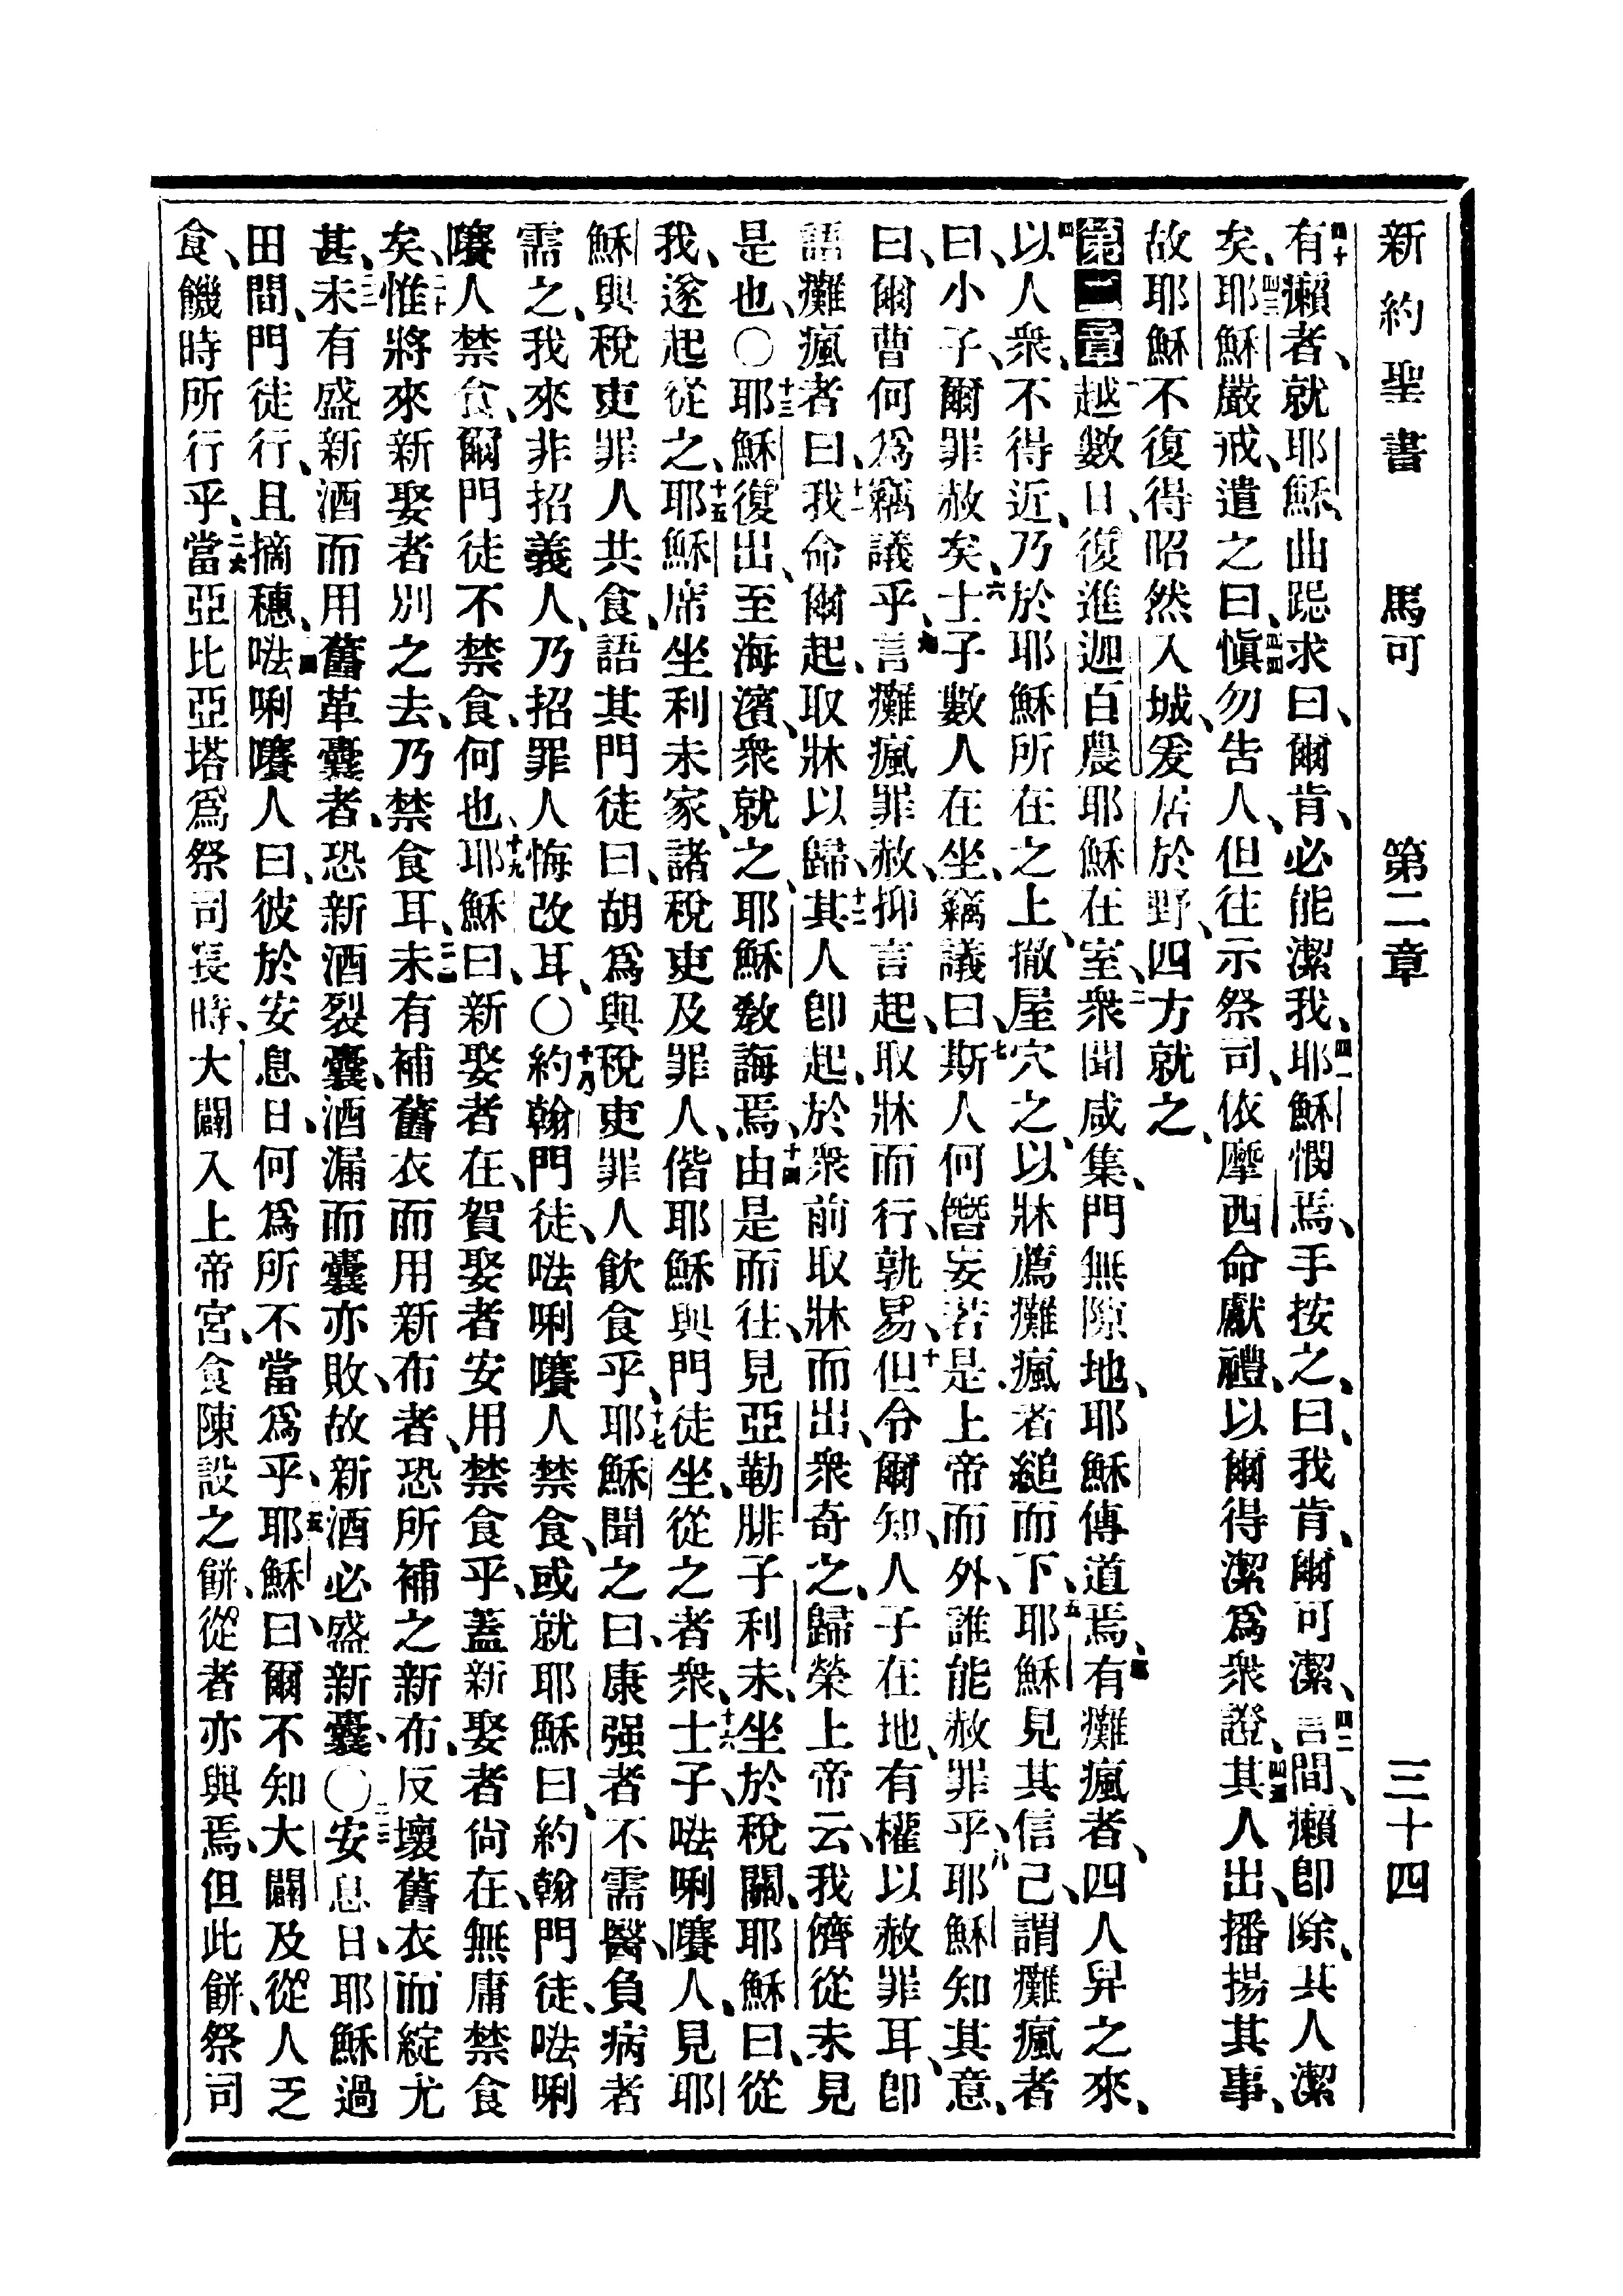 新約聖書 馬可 第二章 三十四
四十有癩者、就耶穌、曲跽求曰、爾肯、必能潔我、四一耶穌憫焉、手按之、曰、我肯、爾可潔、四二言間、癩卽除、其人潔
矣、四三耶穌嚴戒、遣之曰、四四愼勿告人、但往示祭司、依摩西命獻禮、以爾得潔爲衆證、四五其人出、播揚其事、
故耶穌不復得昭然入城、爰居於野、四方就之、
第二章 一越數日、復進迦百農、耶穌在室、二衆聞咸集、門無隙地、耶穌傳道焉、三有癱瘋者、四人舁之來、
四以人衆、不得近、乃於耶穌所在之上、撤屋穴之、以牀薦癱瘋者縋而下、五耶穌見其信己、謂癱瘋者
曰、小子、爾罪赦矣、六士子數人在坐、竊議曰、七斯人何僭妄若是、上帝而外、誰能赦罪乎、八耶穌知其意、
曰、爾曹何爲竊議乎、九言癱瘋罪赦、抑言起、取牀而行、孰易、十但令爾知、人子在地、有權以赦罪耳、卽
語癱瘋者曰、十一我命爾起、取牀以歸、十二其人卽起、於衆前取牀而出、衆奇之、歸榮上帝云、我儕從未見
是也、〇十三耶穌復出、至海濱、衆就之、耶穌敎誨焉、十四由是而往、見亞勒腓子利未、坐於稅關、耶穌曰、從
我、遂起從之、十五耶穌席坐利未家、諸稅吏及罪人、偕耶穌與門徒坐、從之者衆、十六士子、𠵽唎㘔人、見耶
穌與稅吏罪人共食、語其門徒曰、胡爲與稅吏罪人飲食乎、十七耶穌聞之曰、康强者不需醫、負病者
需之、我來非招義人、乃招罪人悔改耳、〇十八約翰門徒、𠵽唎㘔人禁食、或就耶穌曰、約翰門徒、𠵽唎
㘔人禁食、爾門徒不禁食、何也、十九耶穌曰、新娶者在、賀娶者安用禁食乎、蓋新娶者尙在、無庸禁食
矣、二十惟將來新娶者別之去、乃禁食耳、二一未有補舊衣而用新布者、恐所補之新布、反壞舊衣而綻尤
甚、二二未有盛新酒而用舊革囊者、恐新酒裂囊、酒漏而囊亦敗、故新酒必盛新囊、〇二三安息日、耶穌過
田間、門徒行、且摘穗、二四𠵽唎㘔人曰、彼於安息日、何爲所不當爲乎、二五耶穌曰、爾不知大闢及從人乏
食、饑時所行乎、二六當亞比亞塔爲祭司長時、大闢入上帝宮、食陳設之餅、從者亦與焉、但此餅、祭司